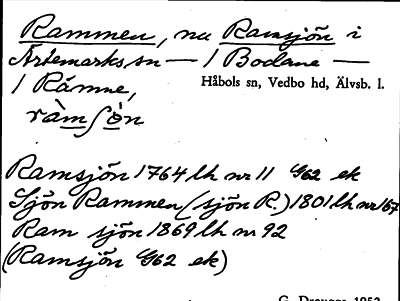 Rammen, nu Ramsjön i
Ärtemarks sn — / Bodane —
/ Rämne, Håbols sn, Vedbo hd, Älvsb. l.
ràmʃø̀n
Ramsjön 1764 lh nr 11 G62 ek
Sjön Rammen (sjön R.) 1801 lh nr 167
Ram sjön 1869 lh nr 92
(Ramsjön G62 ek)